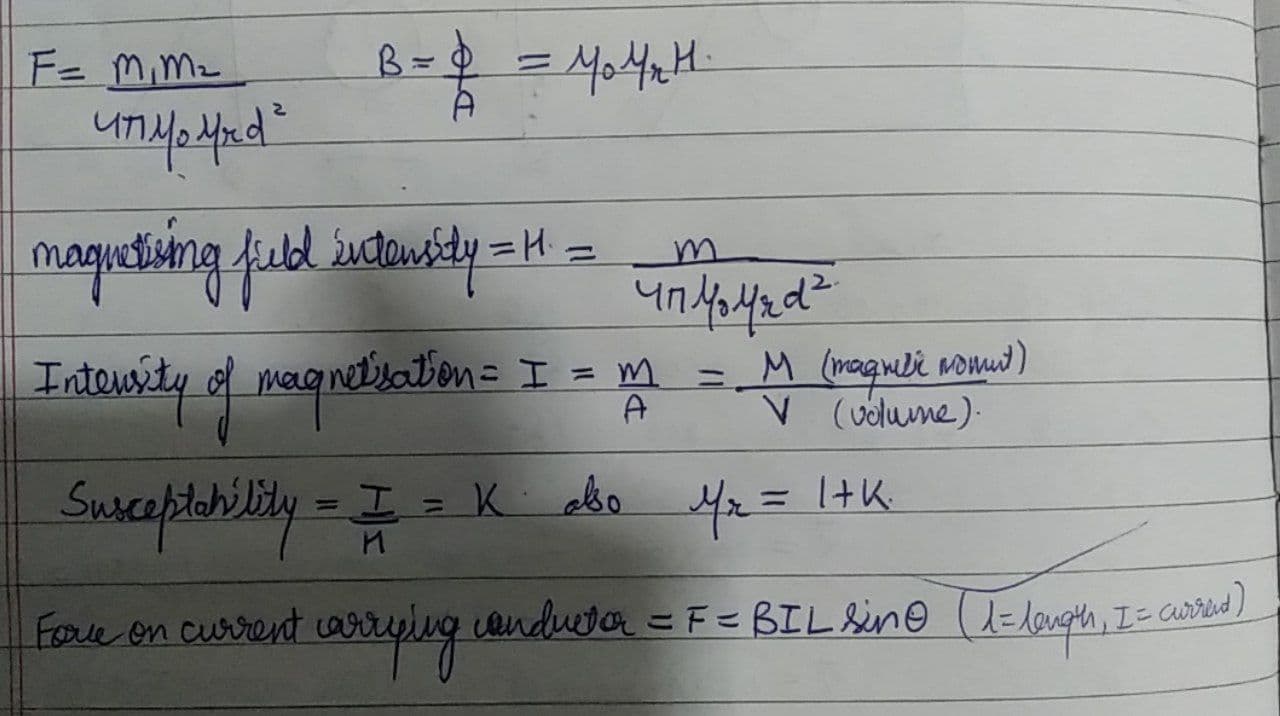 F = m₁m₂ / 4πμ₀μᵣd²    B = ϕ / A = μ₀μᵣH.
magnetising field intensity = H. = m / 4πμ₀μᵣd²
Intensity of magnetisation = I = m / A = M (magnetic moment) / V (volume).
Susceptability = I / H = K. also μᵣ = 1+K.
Force on current carrying conductor = F = BIL sinθ (l = length, I = current)